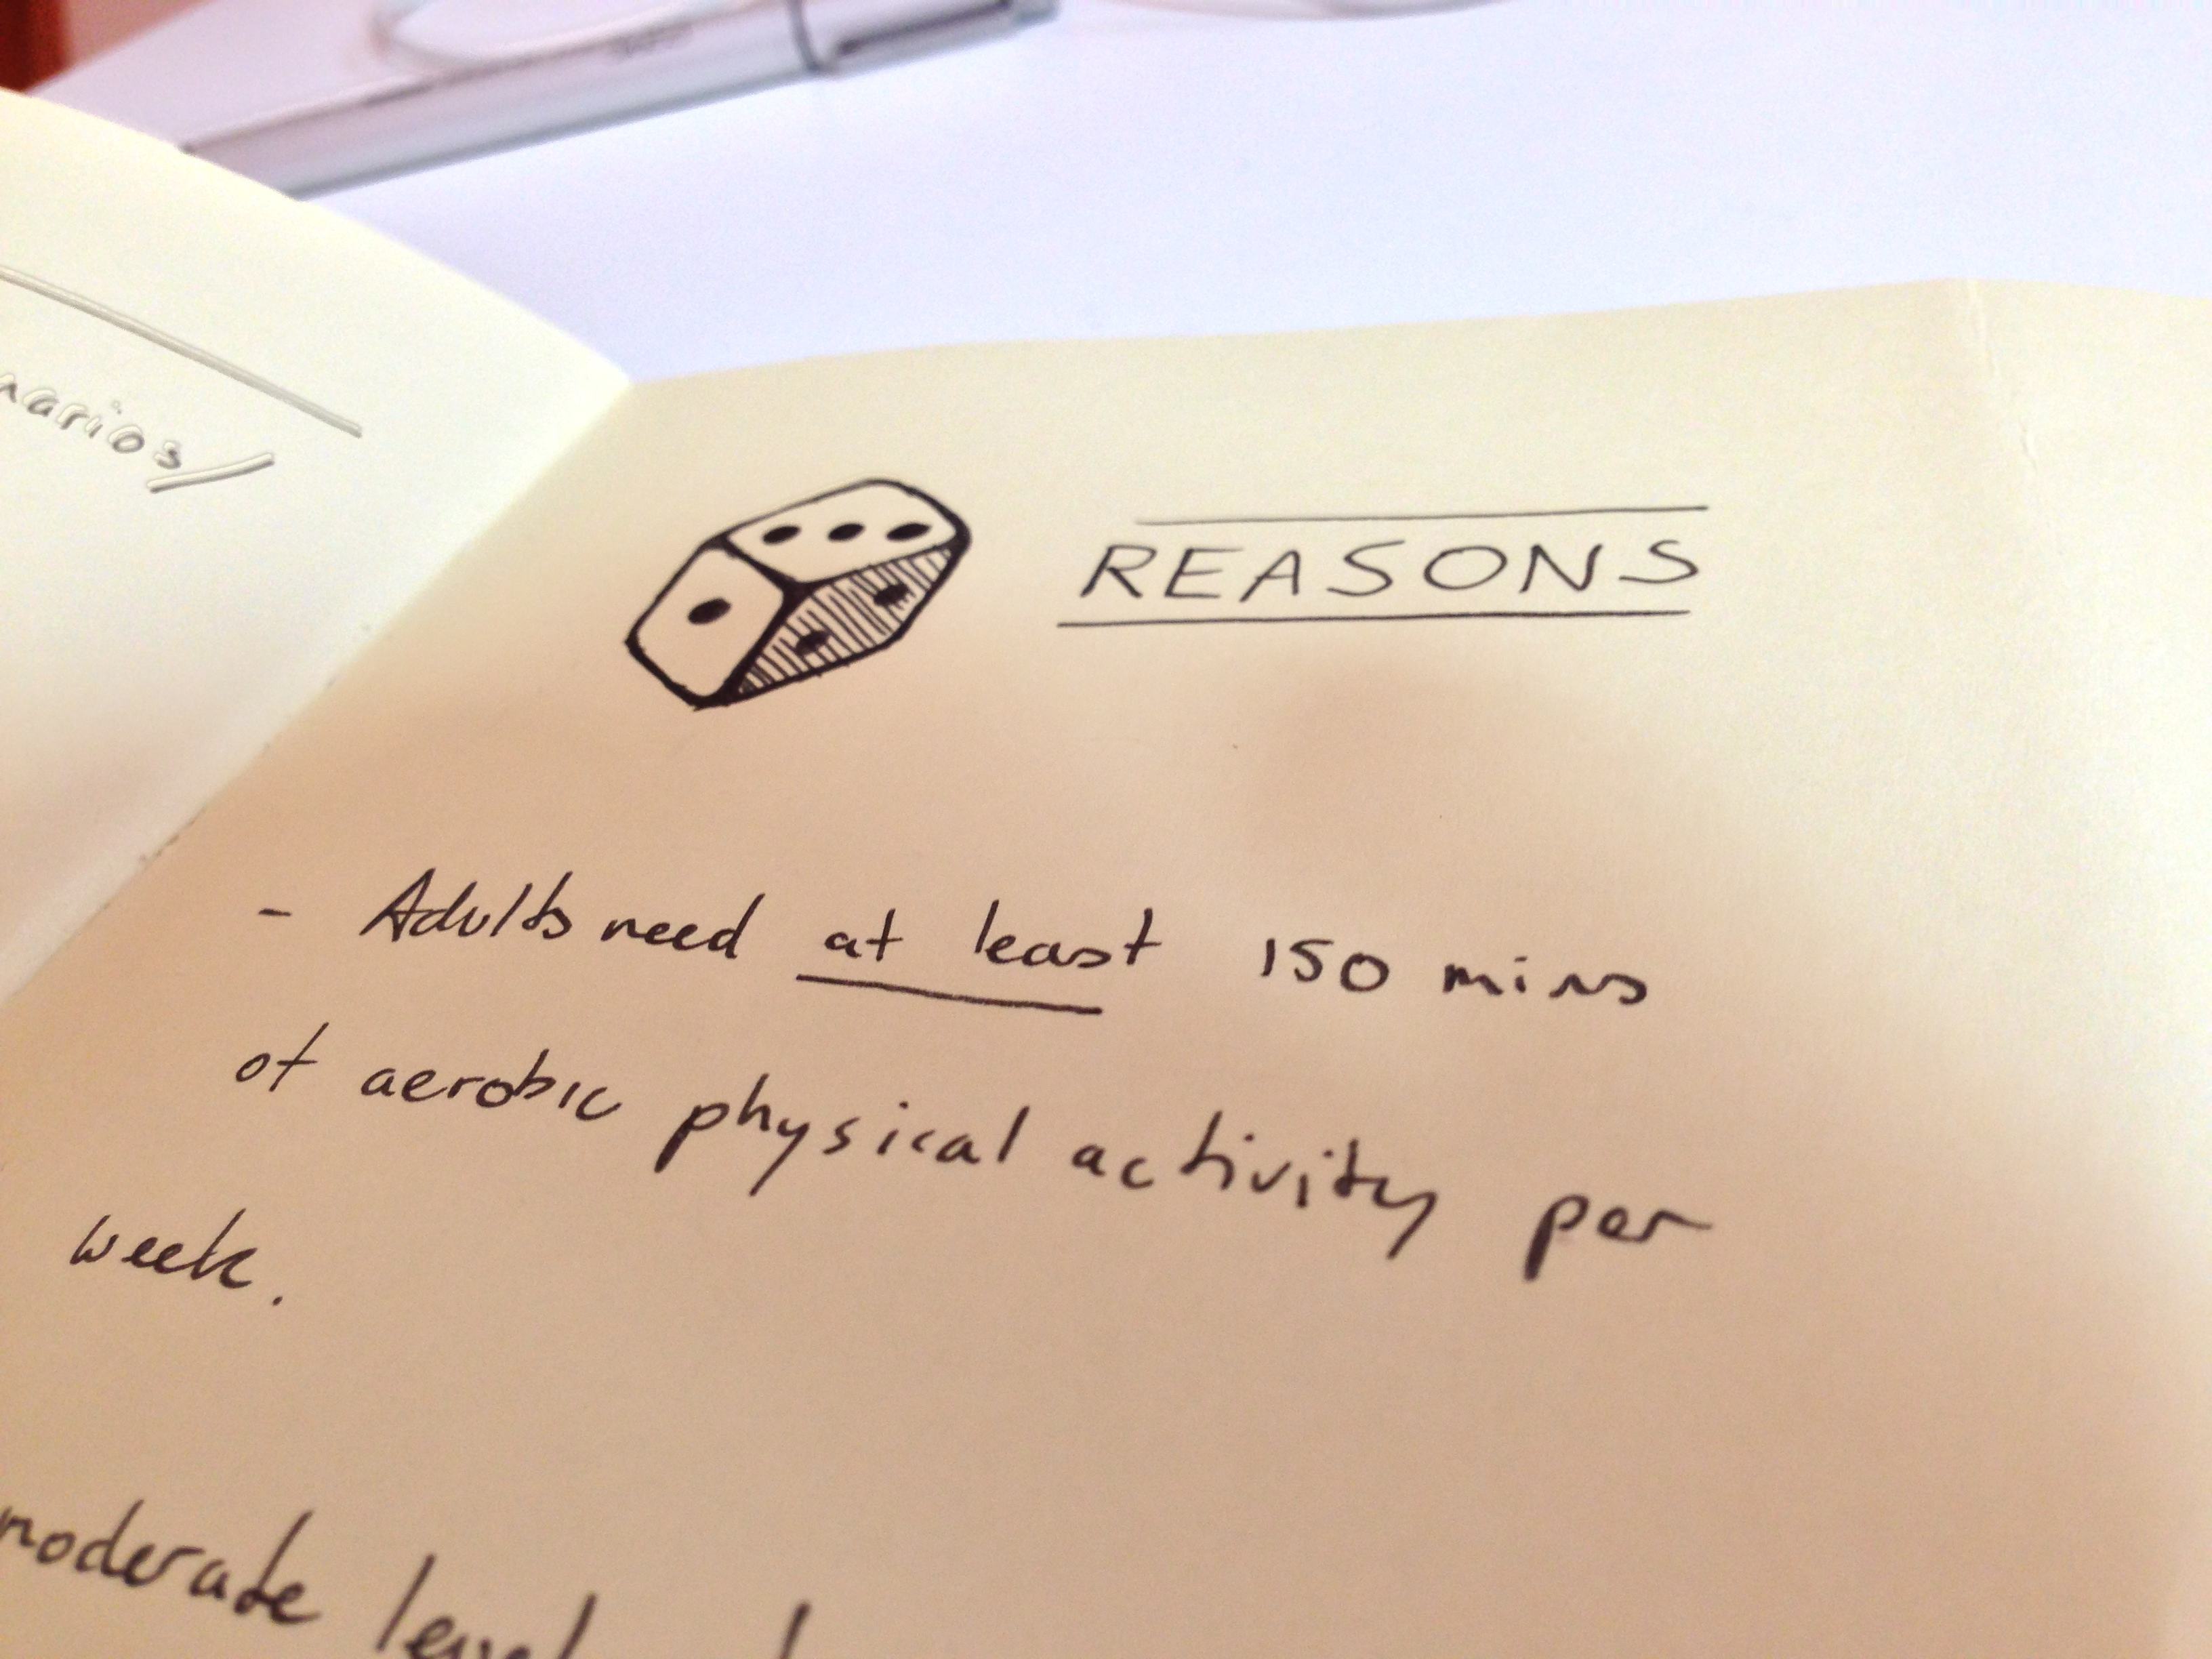 REASONS
- Adults need at least 150 mins
of aerobic physical activity per
week.
moderate level